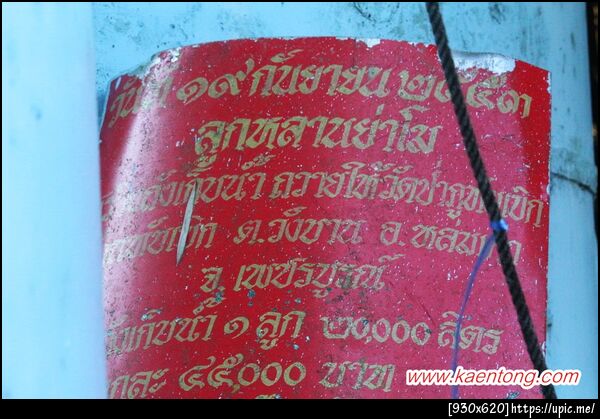 วันที่ ๑๙ กันยายน ๒๕๕๓
ลูกหลานย่าโม
ถังเก็บน้ำ ถวายให้วัดป่าภูทับเบิก
ทับเบิก ต.วังบาล อ.หล่มเก่า
จ.เพชรบูรณ์
ถังเก็บน้ำ ๑ ลูก ๒๐,๐๐๐ ลิตร
๔๕,๐๐๐ บาท
www.kaentong.com
[930x620]https://upic.me/